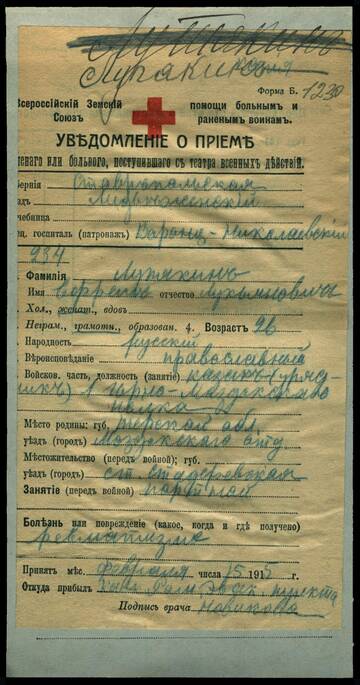 Лутакинъ
Форма Б. 1230
Всероссійскій Земскій
Союзъ
помощи больнымъ и
раненымъ воинамъ.
УВѢДОМЛЕНІЕ О ПРІЕМѢ
ненаго или больного, поступившаго съ театра военныхъ дѣйствій.
бернія Ставропольская
здъ Медвѣженскій
чебница
ец. госпиталь (патронажъ) Воронц-Николаевскій
234
Фамилія Лутакинъ
Имя отчество Лукьяновичъ
Хол., женат., вдов.
Неграм., грамотн., образован. 4. Возрастъ 26
Народность русскій
Вѣроисповѣданіе православный
Войсков. часть, должность (занятіе) казакъ (уряд-
никъ) 1 Горно-Моздокскаго
полка
Мѣсто родины: губ. Терской обл.
уѣздъ (городъ) Моздокскаго отд.
Мѣстожительство (передъ войной); губ.
уѣздъ (городъ) ст.
Занятіе (передъ войной) портной
Болѣзнь или поврежденіе (какое, когда и гдѣ получено)
ревматизмъ
Принятъ мѣс. февраля числа 15 1915 г.
Откуда прибылъ эвак. пункта
Подпись врача Новикова